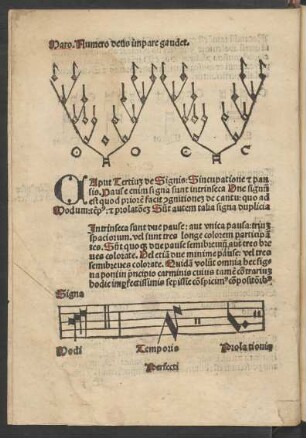 Maro. Numero deus impare gaudet.
O O C C
CAput Tertiuz de Signis: Sincupatione
sio. Pause enim signa sunt intrinseca Une signuz
est quod priorē facit ognitionez de cantu: quo ad
Modum tēp⁹. ⁊ prolatōez Sūt autem talia signa duplicia
Intrinseca sunt due pause: aut unica pausa: triuz
spaciorum. vel sunt tres longe colorem
Sūt quoqz due pause semibreuiū aut tres breues
colorate. Vel etiā due minime pause: vel tres
semibreues colorate. Quidā volūt omnia hec signa
poni in principio carminis cuius tamē cōtrariuz
hodie sepissie cōspicim⁹
Signa
Modi Temporis Prolationis
Perfecti